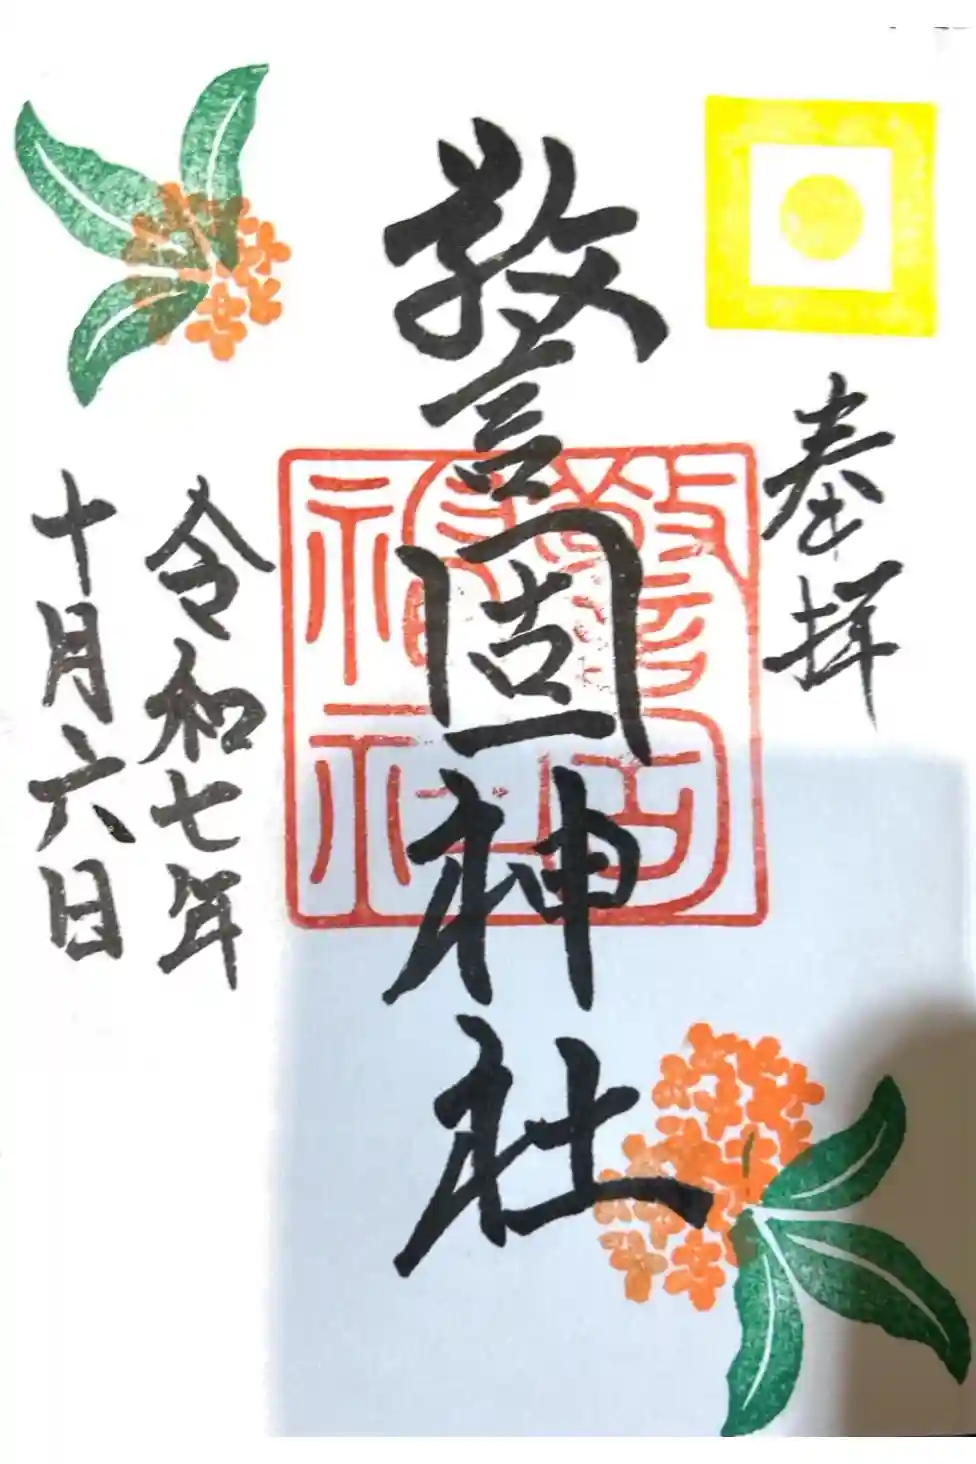 奉拝
警固神社
警固神社
令和七年
十月六日